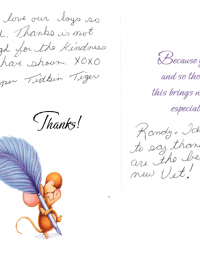 love our boys so
d. Thanks is not
gh for the Kindness
have shown. XOXO
per Tidbin Tiger
Thanks!
Because y
and so tho
this brings n
especial
Randy, I d
to say than
are the be
new Vet!